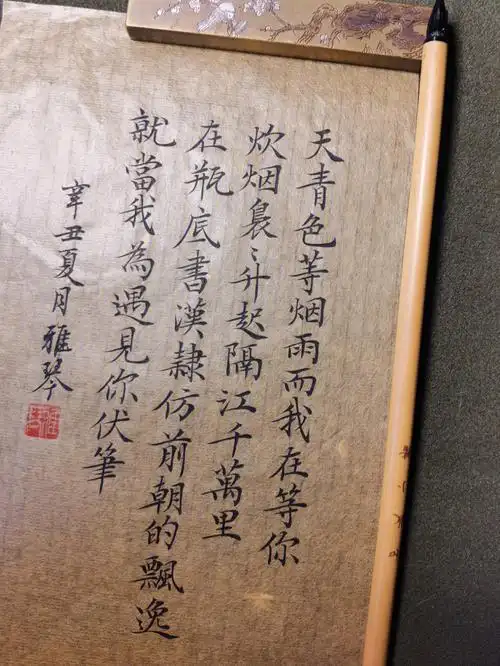 天青色等烟雨而我在等你
炊烟裊〻升起隔江千萬里
在瓶底書漢隸仿前朝的飄逸
就當我為遇見你伏筆
辛丑夏月雅琴